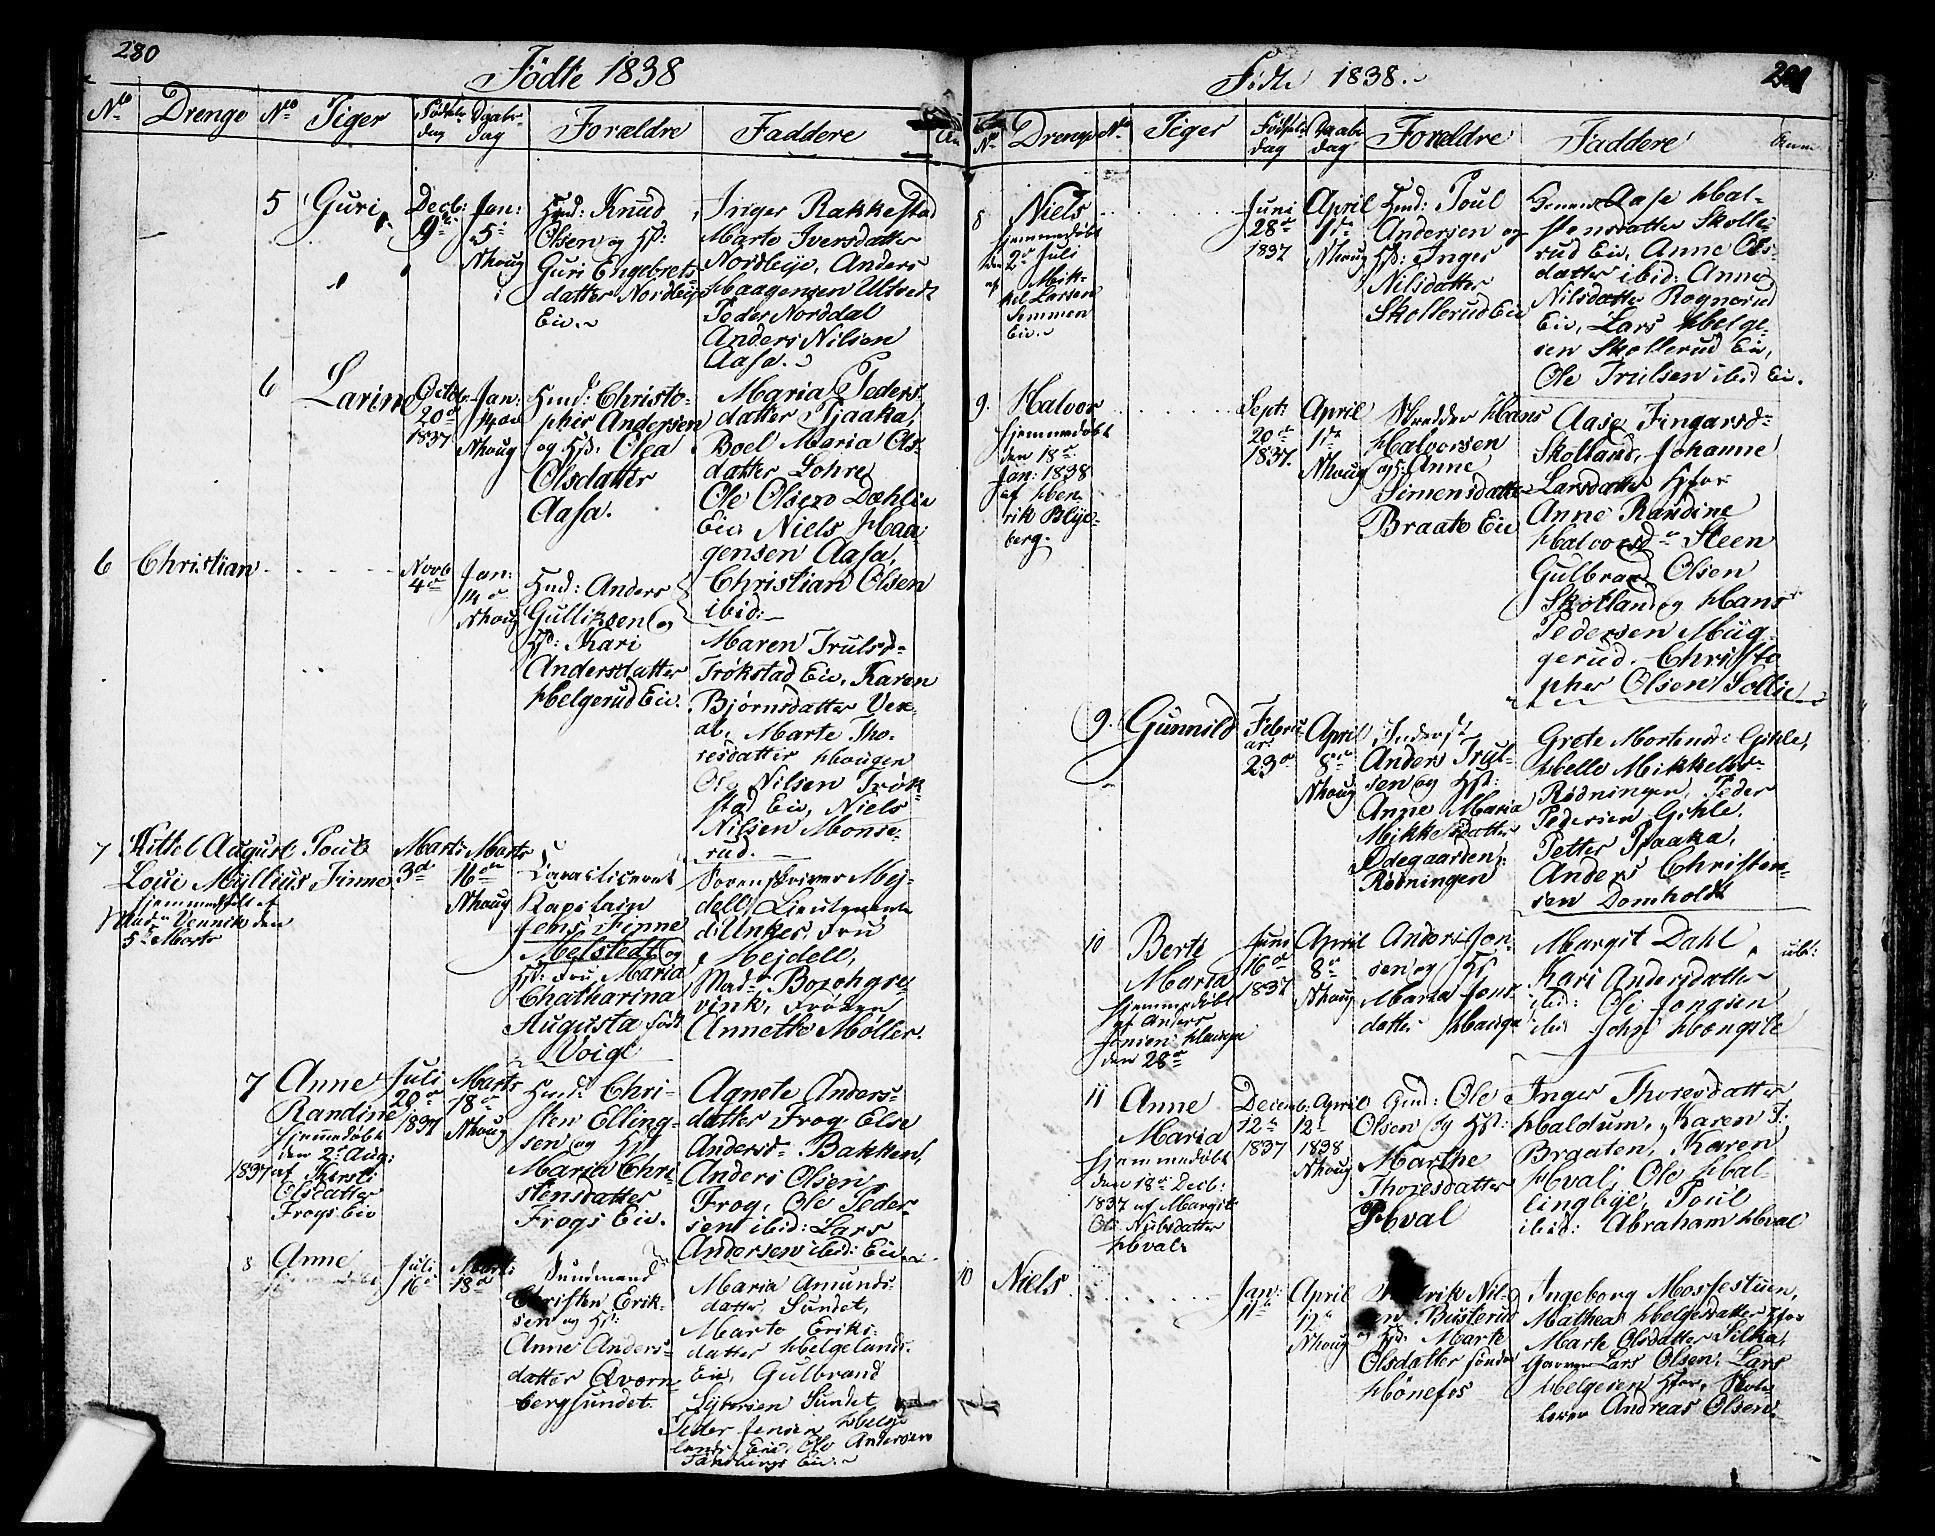 280
Födte 1838
No Drenge No Piger Födsels dag Daabs dag Forældre Faddere
5 Guri
Decb:
9de
Jan:
5te
Nhoug
Hmd: Knud
Olsen og Hst:
Guri Engebrets-
datter Nordbye
Eie.
Inger Rakkestad
Marte Iversdatter
Nordbye, Anders
Haagensen Ultvedt
Peder Norddal
Anders Nilsen
Aasa.
6 Larine
Octob
20de
1837
Jan:
14de
Nhoug
Hmd: Christo-
pher Andersen
og Hst: Olea
Olsdatter
Aasa.
Maria Peders-
datter Pjaaka,
Boel Maria Ols-
datter Lohre
Ole Olsen Dæhlie
Eie, Niels Haa-
gensen Aasa,
Christian Olsen
ibid:
6 Christian
Novb
4de
Jan:
14de
Nhoug
Hmd: Anders
Gulliksen og
Hst: Kari
Andersdatter
Helgerud Eie.
Maren Trulsd-
Trøkstad Eie, Karen
Bjørnsdatter Vex-
al, Marte Tho-
resdatter Hougen
Ole Nilsen Trøk-
stad Eie, Niels
Nilsen Monse-
rud.
7 Kittel August Poul
Loui Myllius Finne
hjemmedøbt af
Mad. Vennik den
5te Marts
Marts
3de
Marts
16de
Nhoug
Caracteriseret
Kapitain
Jens Finne
Melstedt og
Hst: Fru Maria
Chatharina
Augusta født
Voigt
Sorenskriver Mej-
dell, Lieutenant
d: Unker, Fru
Mejdell,
Mad: Borchgre-
vink, Frøken
Annette Møller.
7 Anne
Randine
hjemmedøbt
den 2de Aug:
1837 af Kersti
Olsdatter
Frogs Eie
Juli
20de
1837
Marts
18de
Nhoug
Hmd: Chri-
sten Elling-
sen og Hst
Maria Chri-
stensdatter
Frogs Eie.
Agnete Anders-
datter Frog, Else
Andersd- Bakken,
Anders Olsen
Frog, Ole Peder-
sen ibid: Lars
Andersen ibid: Eie
8 Anne
Juli
16de
Marts
18de
Sundmand
Christen Erik-
sen og Hst:
Anne Anders-
datter Qværn-
bergsundet.
Maria Amunds-
datter Sundet,
Marte Eriks-
datter Helgelands-
Eie, Gulbrand
Syversen Sundet
Peder Jensen Helge-
lands Eie, Ole Andersen
Eie.
Födte 1838.
No Drenge No Piger Fødsels dag Daabs dag Forældre Faddere Anm
8 Niels
hjemmedøbt
den 2de Juli
af Mik-
kel Larsen
Semmen
Eie.
Juni
28de
1837
April
1ste
Nhoug
Hmd: Poul
Andersen og
Hst: Inger
Nilsdatter
Skollerud Eie
Aase Hal-
stensdatter Skolle-
rud Eie, Anne Ols-
datter ibid: Anne
Nilsdatter Rognerud
Eie, Lars Helge-
sen Skollerud Eie,
Ole Trulsen ibid Eie.
9. Halvor
hjemmedøbt
den 18de
Jan: 1838
af Hen-
rik Blye-
berg.
Sept:
20de
1837.
April
1ste
Nhoug
Skredder Hans
Halvorsen
og Anne
Simensdatter
Braate Eie
Aase Fingarsd-
Skolland, Johanne
Larsdatter Hfos
Anne Randine
Halvorsd- Steen
Gulbrand Olsen
Skolland og Hans
Pedersen Müg-
gerud. Christo-
pher Olsen Sollie
9. Gunnild
Febru-
ar
23de
April
8de
Nhoug
Inderst
Anders Trul-
sen og Hst:
Anne Maria
Mikkelsdatter
Ødegaarden
Rødningen
Grete Mortensd: Gihle,
Helle Mikkelsd-
Rødningen, Peder
Pedersen Gihle,
Petter Pjaaka,
Anders Christen-
sen Domholdt
10 Berte
Maria
hjemmedøbt
af Anders
Jonsen Hauga
den 28de
Juni
16de
1837
April
8de
Nhoug
Anders Jon-
sen og Hst
Maria Jons-
datter Hauga
Margit Dahl,
Kari Andersdatter
ibid: Ole Jongsen
ibid Hongsle
11 Anne
Maria
hjemmedøbt
den 18de Decb:
1837 af Margit
Nilsdatter
Hval
Decemb:
12te
1837
April
12te
1838
Nhoug
Gmd: Ole
Olsen og Hst:
Marthe
Thoresdatter
Hval
Inger Thoresdatter
Haldum, Karen T:
Braaten, Karen
Hval, Ole Hal-
lingbye, Poul
ibid: Abraham Hval
10 Niels
Jan:
11te
April
12te
Nhoug
Nil-
sen Busterud
og Hst: Marte
Olsdatter søndre
Hönefos
Ingeborg Mosfestuen,
Mathea Helgesdatter Hfos
Marte Olsdatter Silka,
Garver Lars Olsen, Lars
Helgesen Hfos,
Andreas Olsen